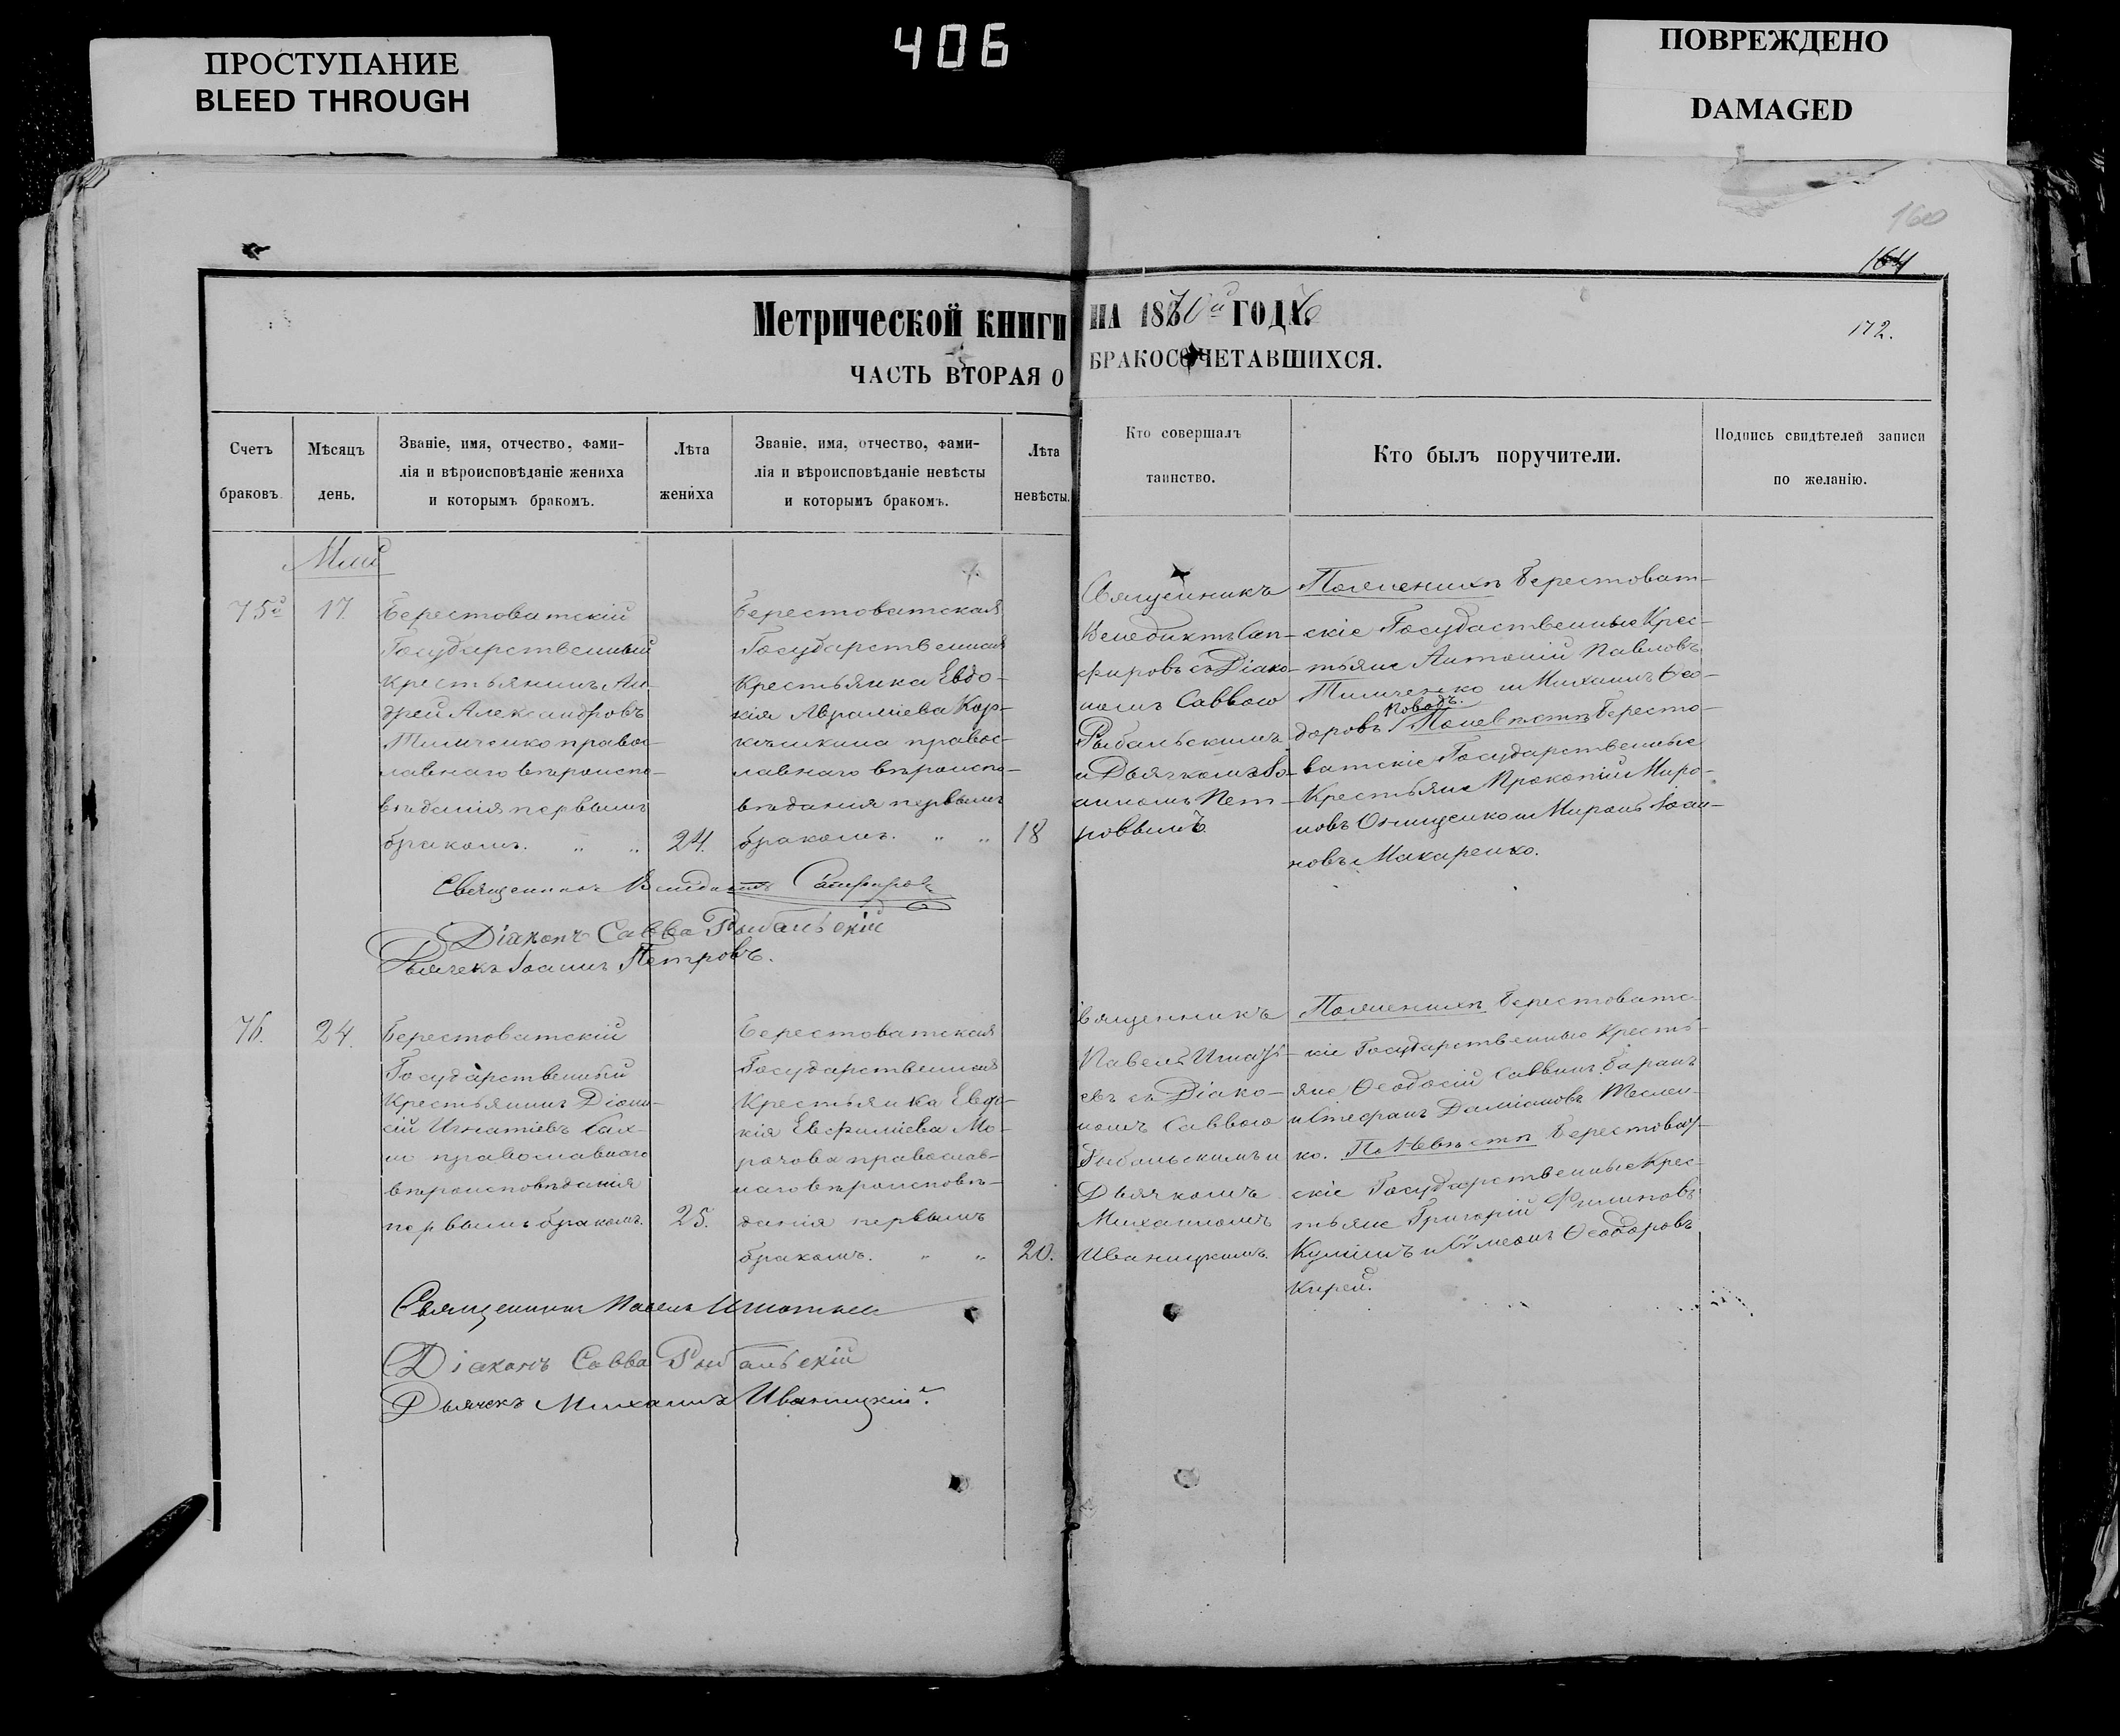 ПРОСТУПАНИЕ
BLEED THROUGH
406
ПОВРЕЖДЕНО
DAMAGED
160
164
172.
Метрической книги НА 1870й ГОДЪ.
ЧАСТЬ ВТОРАЯ О БРАКОСОЧЕТАВШИХСЯ.
Счетъ
браковъ.
Мѣсяцъ
день.
Званіе, имя, отчество, фами-
лія и вѣроисповѣданіе жениха
и которымъ бракомъ.
Лѣта
жениха
Званіе, имя, отчество, фами-
лія и вѣроисповѣданіе невѣсты
и которымъ бракомъ.
Лѣта
невѣсты.
Кто совершалъ
таинство.
Кто былъ поручители.
Подпись свидѣтелей записи
по желанію.
Май
75й
17.
Берестоватскій
Государственный
Крестьянинъ Ан-
дрей Александровъ
Тимченко правос-
лавнаго вѣроиспо-
вѣданія первымъ
бракомъ. " "
24.
Берестоватская
Государственная
Крестьянка Евдо-
кія Авраміева Кор-
правос-
лавнаго вѣроиспо-
вѣданія первымъ
бракомъ. " "
18
Священникъ
Венедиктъ Сап-
фировъ съ Діако-
номъ Саввою
Рыбальскимъ
и Дьячкомъ Іо-
анномъ Пет-
ровымъ
По женихѣ Берестоват-
скіе Государственные Крес-
тьяне Антоній Павловъ
Тимченко и Михаилъ Ѳео-
доровъ Поводъ. По невѣстѣ Бересто-
ватскіе Государственные
Крестьяне Прокопій Миро-
новъ Онищенко и Миронъ Іоан-
новъ Макаренко.
Священникъ Венедиктъ Сапфировъ
Діаконъ Савва Рыбальскій
Дьячекъ Іоаннъ Петровъ.
76.
24.
Берестоватскій
Государственный
Крестьянинъ Діони-
сій Игнатіевъ
православнаго
вѣроисповѣданія
первымъ бракомъ.
25.
Берестоватская
Государственная
Крестьянка
кія Евфиміева Мо-
рочова православ-
наго вѣроисповѣ-
данія первымъ
бракомъ. " "
20.
Священникъ
Павелъ Игнать-
евъ съ Діако-
номъ Саввою
Рыбальскимъ и
Дьячкомъ
Михаиломъ
Иваницкимъ.
По женихѣ Берестоватс-
кіе Государственные Кресть-
яне Ѳеодосій Саввинъ Баранъ
и Стефанъ Даміановъ Теслен-
ко. По Невѣстѣ Берестоват-
скіе Государственные Крес-
тьяне Григорій Филиповъ
Кулишъ и Сѵмеонъ Ѳеодоровъ
Кирей.
Священникъ Павелъ Игнатьев
Діаконъ Савва Рыбальскій
Дьячекъ Михаилъ Иваницкій.